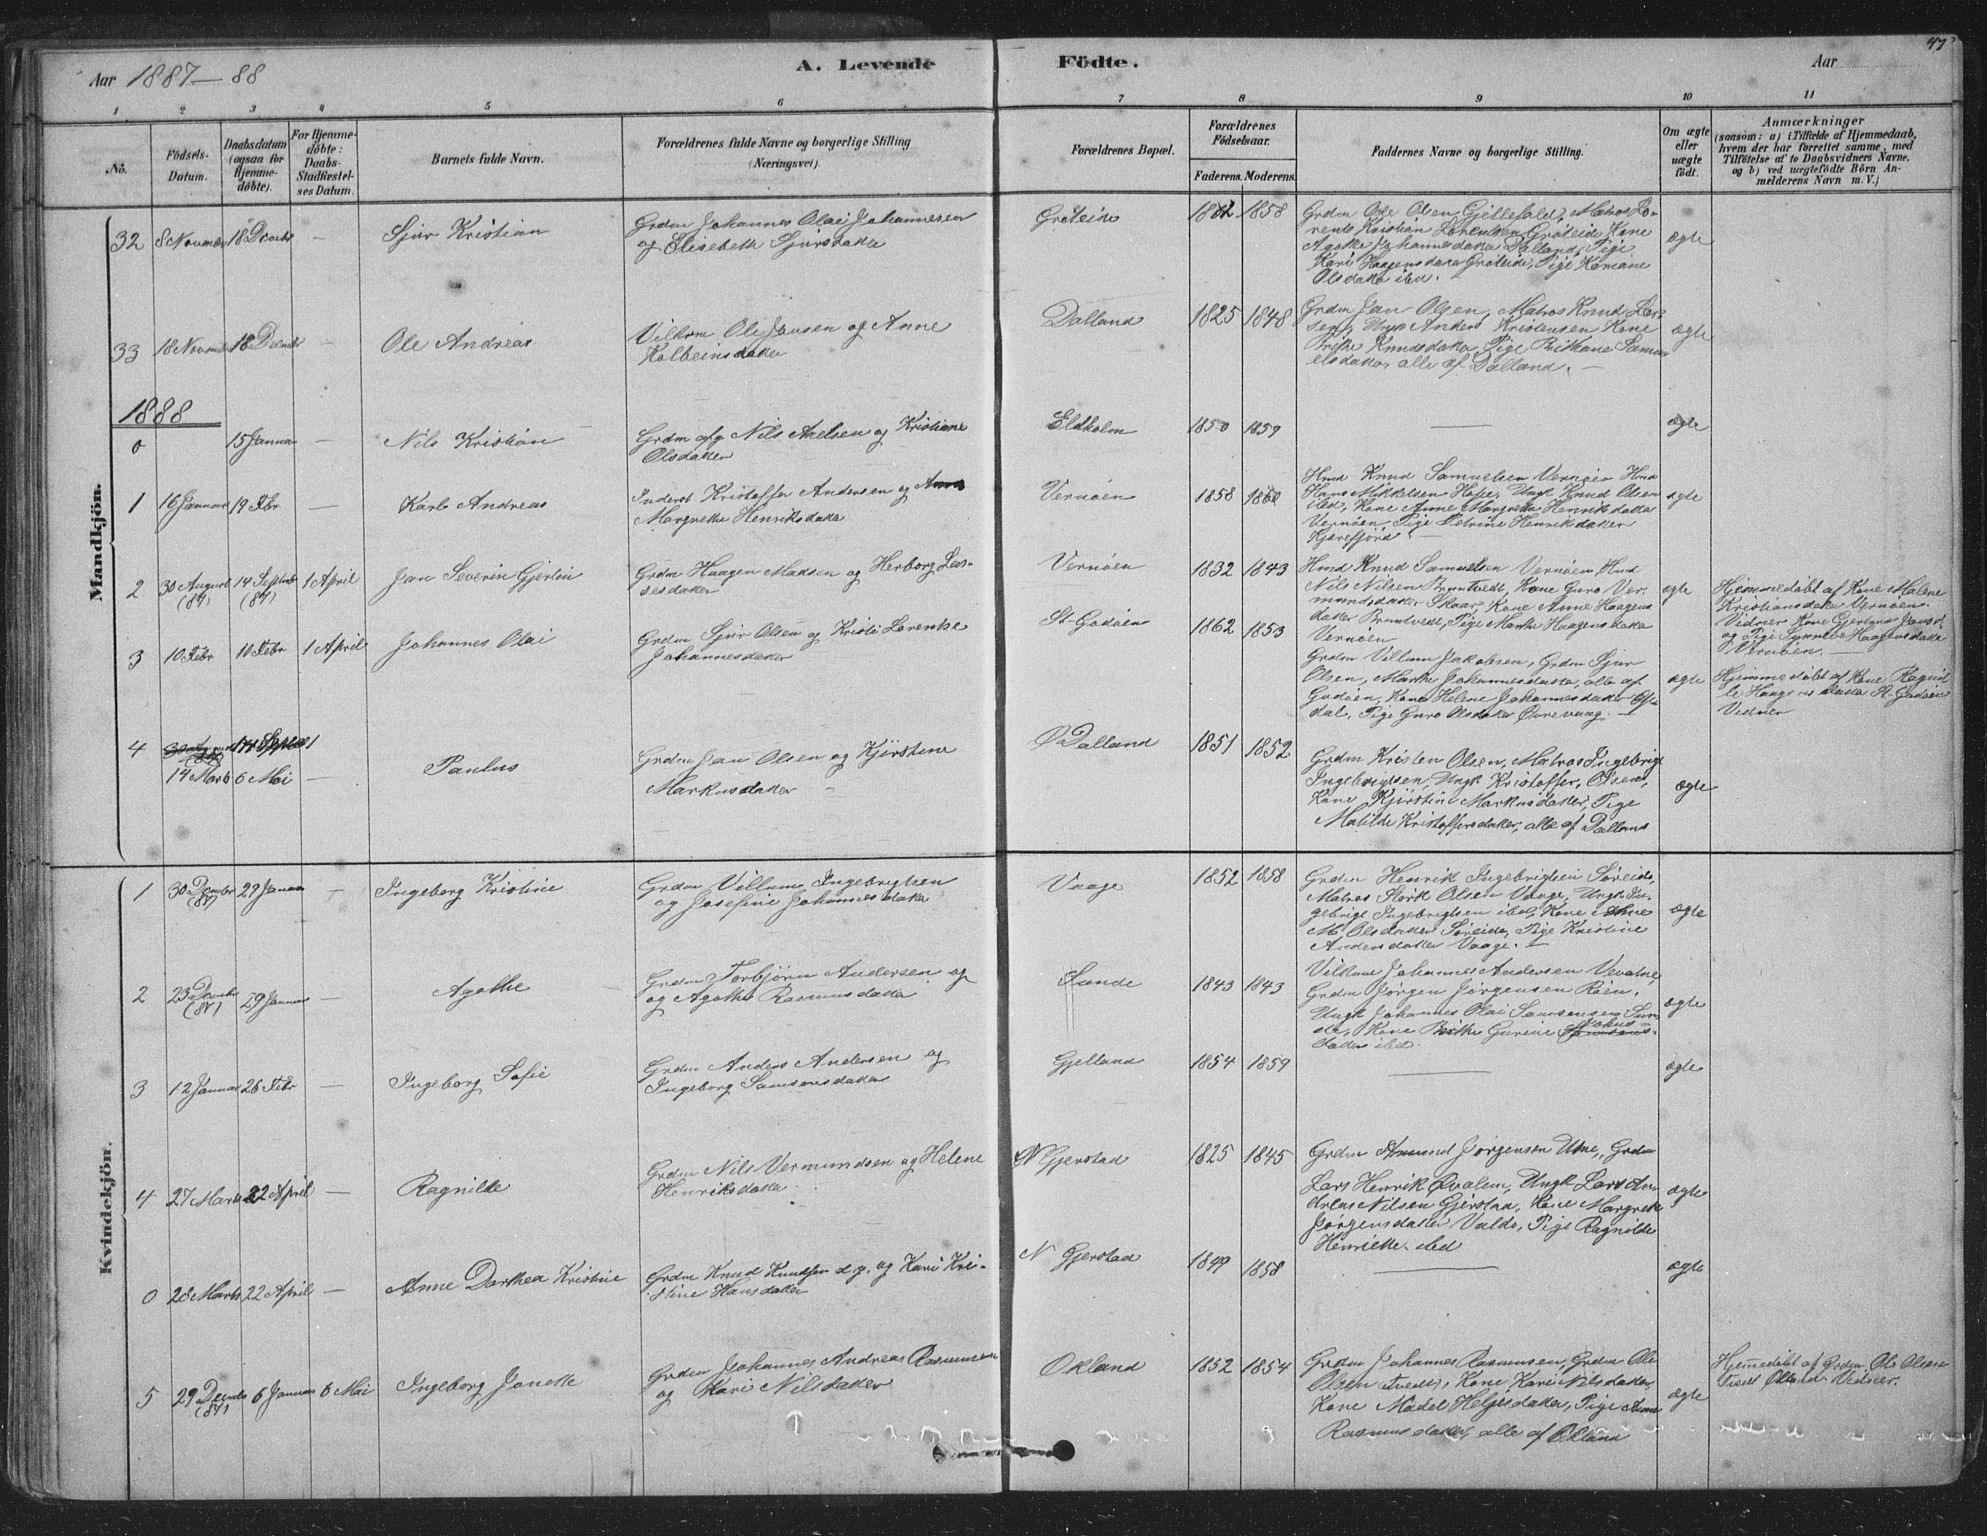 47
Aar 1887—88
A. Levende
Födte.
Aar
1 2 3 4 5 6 7 8 9 10 11
No.
Födsels-Datum.
Daabsdatum (ogsaa for Hjemmedöbte).
For Hjemmedöbte: Daabs-Stadfæstelses Datum.
Barnets fulde Navn.
Forældrenes fulde Navne og borgerlige Stilling (Næringsvei).
Forældrenes Bopæl.
Forældrenes Födselsaar.
Faderens. Moderens.
Faddernes Navne og borgerlige Stilling.
Om ægte eller uægte födt.
Anmærkninger
(saasom: a) i Tilfælde af Hjemmedaab, hvem der har forrettet samme, med Tilföielse af to Daabsvidners Navne, og b) ved uægtefödte Börn Anmelderens Navn m. V.)
Mandkjön.
32 8 Novmber 18 Decmbr — Sjur Kristian
Grdm Johannes Olai Johannesen
og Elisebeth Sjursdatter
Grøteide 1862 1858
Grdm Ole Olsen Gjellefald, Matros Lo-
rents Kristian Lorentsen Grøteide, Kone
Agathe Johannesdatter Dalland, Pige
Kari Haagensdatter Grøteide, Pige
Olsdatter ibd.
ægte
33 18 Novmbr 18 Decmbr — Ole Andreas
Ole Jansen og Anne
Kolbeinsdatter
Dalland 1825 1848
Grdm Jan Olsen, Matros Knud Lar-
sen, Ungk Anders Kristensen, Kone
Knudsdatter, Pige
elsdatter, alle af Dalland. —
ægte
1888
0 15 Januar — Nils Kristian
Grdm Nils Axelsen og Kristiane
Olsdatter
Eldholm 1850 1859 — ægte
1 16 Januar 19 Febr — Karl Andreas
Inderst Kristoffer Andersen og Anne
Margrethe Henriksdatter
Vernøen 1858 1860
Hmd Knud Samuelsen Vernøen, Hmd
Hans Mikkelsen, Ungk Knud Olsen
ibd, Kone Anne Margrethe Henriksdatter
Vernøen, Pige Petrine Henriksdatter
Kjærefjord —
ægte
2 30 August (87) 14 Septbr (87) 1 April Jan Severin Gjertin
Grdm Haagen Madsen og Herborg Las-
sesdatter
Vernøen 1832 1843
Hmd Knud Samuelsen Vernøen, Hmd
Nils Nilsen Bruntvedt, Kone Guro Ver-
mundsdatter Skaar, Kone Anne Haagens
datter Bruntvedt, Pige Marthe Haagensdatter
Vernøen
ægte
Hjemmedøbt af Kone Malene
Kristiansdatter Vernøen.
Vidner Kone Gjertrud Jansd.
og Pige Synneve Haagensdatter
Vernøen. —
3 10 Febr 10 Febr 1 April Johannes Olai
Grdm Sjur Olsen og Kristi Lorentse
Johannesdatter
St. Godøen 1862 1853
Grdm Villum Jakobsen, Grdm Sjur
Olsen, Marthe Johannesdatter, alle af
Godøen, Kone Helene Johannesdatter
dal, Pige Guro Olsdatter Øvrevaag. —
ægte
Hjemmedøbt af Kone Ragnil-
de Haagensdatter St. Godøen
Vidner
4 14 Marts 6 Mai — Paulus
Grdm Jan Olsen og Kjerstine
Markusdatter —
Ø Dalland 1851 1852
Grdm Kristen Olsen, Matros Ingebrigt
Ingebrigtsen, Ungk Kristoffer Olsen,
Kone Kjerstine Markusdatter, Pige
Matilde Kristoffersdatter, alle af Dalland
ægte
Kvindekjön.
1 30 Decmbr (87) 29 Januar — Ingeborg Kristine
Grdm Villum Ingebrigtsen
og Josefine Johannesdatter
Vaage 1852 1858
Grdm Henrik Ingebrigtsen Søreide,
Matros Størk Olsen Vaage, Ungk In-
gebrigt Ingebrigtsen ibd, Kone Anne
M. Olsdatter Søreide, Pige Kristine
Andersdatter Vaage. —
ægte
2 23 Decmbr (87) 29 Januar — Agathe
Grdm Torbjørn Andersen og
og Agathe Rasmusdatter
Sunde 1843 1843
Johannes Andersen
Grdm Jørgen Jørgensen Røen,
Ungk Johannes Olai Samsonsen Sun-
de, Kone Berthe Gurine
datter ibd.
ægte
3 12 Januar 26 Febr — Ingeborg Sofie
Grdm Anders Andersen og
Ingeborg Samsonsdatter
Gjelland 1854 1859 — ægte
4 27 Marts 22 April — Ragnilde
Grdm Nils Vermundsen og Helene
Henriksdatter
N Gjerstad 1825 1845
Grdm Amund Jørgensen Ulne, Grdm
Lars Henrik Øvalem, Ungk Lars An-
dreas Nilsen Gjerstad, Kone Margrethe
Jørgensdatter Valde, Pige Ragnilde
Henrikke ibd
ægte
0 28 Marts 22 April — Anne Darthea Kristine
Grdm Knud Knudsen d.y. og Kari Kri-
stine Hansdatter
N Gjerstad 1849 1858 — ægte
5 29 Decmbr (87) 6 Januar 6 Mai Ingeborg Janette
Grdm Johannes Andreas Rasmussen
og Kari Nilsdatter
Økland 1852 1854
Grdm Johannes Rasmussen, Grdm Ole
Olsen Tvedt, Kone Kari Nilsdatter,
Kone Madel Helgesdatter, Pige Anne
Rasmusdatter, alle af Økland
ægte
Hjemmedøbt af Grdm Ole Olsen
Tvedt Økland. Vidner.